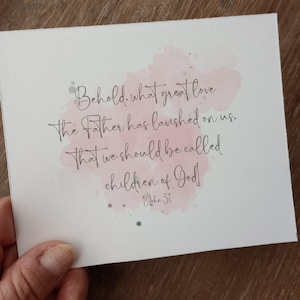 Behold, what great love
the Father has lavished on us,
that we should be called
children of God!
1 John 3:1